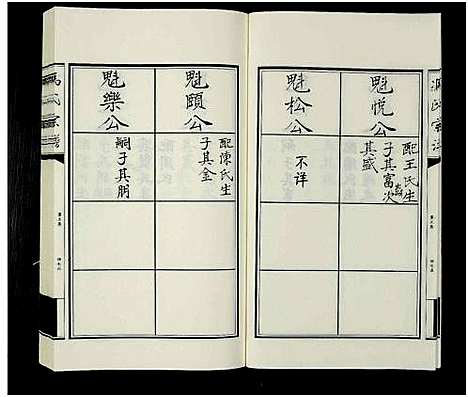 魁悦公
配王氏生
子其富次
其盛
魁松公
不详
魁頤公
配陳氏生
子其金
魁樂公
嗣子其朋
馮氏宗譜